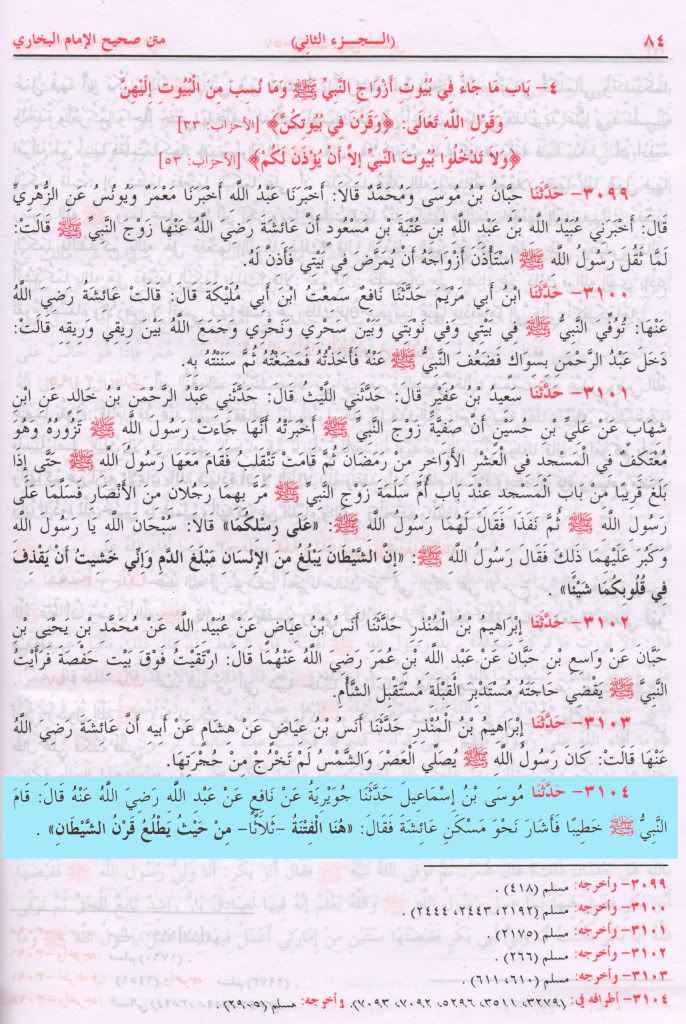 ٨٤ (الـجـزء الثاني) متن صحيح الإمام البخاري
٤- بَاب مَا جَاءَ فِي بُيُوتِ أَزْوَاجِ النَّبِيِّ ﷺ وَمَا نُسِبَ مِنَ الْبُيُوتِ إِلَيْهِنَّ
وَقَوْلِ اللَّه تَعَالَى: ﴿وَقَرْنَ فِي بُيُوتِكُنَّ﴾ [الأحزاب: ٣٣]
﴿وَلَا تَدْخُلُوا بُيُوتَ النَّبِيِّ إِلاَّ أَنْ يُؤْذَنَ لَكُمْ﴾ [الأحزاب: ٥٣]
٣٠٩٩- حَدَّثَنَا حِبَّانُ بْنُ مُوسَى وَمُحَمَّدٌ قَالَا: أَخْبَرَنَا عَبْدُ اللَّه أَخْبَرَنَا مَعْمَرٌ وَيُونُسُ عَنِ الزُّهْرِيِّ
قَالَ: أَخْبَرَنِي عُبَيْدُ اللَّه بْنُ عَبْدِ اللَّه بْنِ عُتْبَةَ بْنِ مَسْعُودٍ أَنَّ عَائِشَةَ رَضِيَ اللَّهُ عَنْهَا زَوْجَ النَّبِيِّ ﷺ قَالَتْ:
لَمَّا ثَقُلَ رَسُولُ اللَّه ﷺ اسْتَأْذَنَ أَزْوَاجَهُ أَنْ يُمَرَّضَ فِي بَيْتِي فَأَذِنَّ لَهُ.
٣١٠٠- حَدَّثَنَا ابْنُ أَبِي مَرْيَمَ حَدَّثَنَا نَافِعٌ سَمِعْتُ ابْنَ أَبِي مُلَيْكَةَ قَالَ: قَالَتْ عَائِشَةُ رَضِيَ اللَّهُ
عَنْهَا: تُوُفِّيَ النَّبِيُّ ﷺ فِي بَيْتِي وَفِي نَوْبَتِي وَبَيْنَ سَحْرِي وَنَحْرِي وَجَمَعَ اللَّهُ بَيْنَ رِيقِي وَرِيقِهِ قَالَتْ:
دَخَلَ عَبْدُ الرَّحْمَنِ بِسِوَاكٍ فَضَعُفَ النَّبِيُّ ﷺ عَنْهُ فَأَخَذْتُهُ فَمَضَغْتُهُ ثُمَّ سَنَنْتُهُ بِهِ.
٣١٠١- حَدَّثَنَا سَعِيدُ بْنُ عُفَيْرٍ قَالَ: حَدَّثَنِي اللَّيْثُ قَالَ: حَدَّثَنِي عَبْدُ الرَّحْمَنِ بْنُ خَالِدٍ عَنِ ابْنِ
شِهَابٍ عَنْ عَلِيِّ بْنِ حُسَيْنٍ أَنَّ صَفِيَّةَ زَوْجَ النَّبِيِّ ﷺ أَخْبَرَتْهُ أَنَّهَا جَاءَتْ رَسُولَ اللَّه ﷺ تَزُورُهُ وَهُوَ
مُعْتَكِفٌ فِي الْمَسْجِدِ فِي الْعَشْرِ الْأَوَاخِرِ مِنْ رَمَضَانَ ثُمَّ قَامَتْ تَنْقَلِبُ فَقَامَ مَعَهَا رَسُولُ اللَّه ﷺ حَتَّى إِذَا
بَلَغَ قَرِيبًا مِنْ بَابِ الْمَسْجِدِ عِنْدَ بَابِ أُمِّ سَلَمَةَ زَوْجِ النَّبِيِّ ﷺ مَرَّ بِهِمَا رَجُلَانِ مِنَ الْأَنْصَارِ فَسَلَّمَا عَلَى
رَسُولِ اللَّهِ ﷺ ثُمَّ نَفَذَا فَقَالَ لَهُمَا رَسُولُ اللَّه ﷺ: «عَلَى رِسْلِكُمَا» قَالَا: سُبْحَانَ اللَّه يَا رَسُولَ اللَّه
وَكَبُرَ عَلَيْهِمَا ذَلِكَ فَقَالَ رَسُولُ اللَّه ﷺ: «إِنَّ الشَّيْطَانَ يَبْلُغُ مِنَ الإِنْسَانِ مَبْلَغَ الدَّمِ وَإِنِّي خَشِيتُ أَنْ يَقْذِفَ
فِي قُلُوبِكُمَا شَيْئًا» .
٣١٠٢- حَدَّثَنَا إِبْرَاهِيمُ بْنُ الْمُنْذِرِ حَدَّثَنَا أَنَسُ بْنُ عِيَاضٍ عَنْ عُبَيْدِ اللَّه عَنْ مُحَمَّدِ بْنِ يَحْيَى بْنِ
حَبَّانَ عَنْ وَاسِعِ بْنِ حَبَّانَ عَنْ عَبْدِ اللَّه بْنِ عُمَرَ رَضِيَ اللَّهُ عَنْهُمَا قَالَ: ارْتَقَيْتُ فَوْقَ بَيْتِ حَفْصَةَ فَرَأَيْتُ
النَّبِيَّ ﷺ يَقْضِي حَاجَتَهُ مُسْتَدْبِرَ الْقِبْلَةِ مُسْتَقْبِلَ الشَّأْمِ.
٣١٠٣- حَدَّثَنَا إِبْرَاهِيمُ بْنُ الْمُنْذِرِ حَدَّثَنَا أَنَسُ بْنُ عِيَاضٍ عَنْ هِشَامٍ عَنْ أَبِيهِ أَنَّ عَائِشَةَ رَضِيَ اللَّهُ
عَنْهَا قَالَتْ: كَانَ رَسُولُ اللَّهِ ﷺ يُصَلِّي الْعَصْرَ وَالشَّمْسُ لَمْ تَخْرُجْ مِنْ حُجْرَتِهَا.
٣١٠٤- حَدَّثَنَا مُوسَى بْنُ إِسْمَاعِيلَ حَدَّثَنَا جُوَيْرِيَةُ عَنْ نَافِعٍ عَنْ عَبْدِ اللَّه رَضِيَ اللَّهُ عَنْهُ قَالَ: قَامَ
النَّبِيُّ ﷺ خَطِيبًا فَأَشَارَ نَحْوَ مَسْكَنِ عَائِشَةَ فَقَالَ: «هُنَا الْفِتْنَةُ -ثَلَاثًا- مِنْ حَيْثُ يَطْلُعُ قَرْنُ الشَّيْطَانِ» .
٣٠٩٩- وأخرجه: مسلم (٤١٨) .
٣١٠٠- وأخرجه: مسلم (٢١٩٢، ٢٤٤٣، ٢٤٤٤) .
٣١٠١- وأخرجه: مسلم (٢١٧٥) .
٣١٠٢- وأخرجه: مسلم (٢٦٦) .
٣١٠٣- وأخرجه: مسلم (٦١٠، ٦١١) .
٣١٠٤- أطرافه في: (٣٢٧٩، ٣٥١١، ٥٢٩٦، ٧٠٩٢، ٧٠٩٣). وأخرجه: مسلم (٢٩٠٥) .